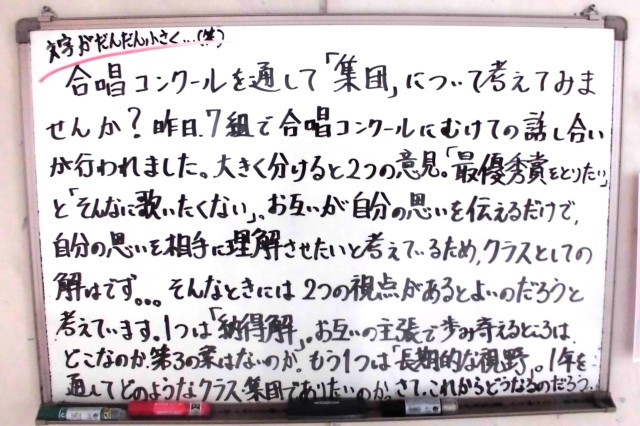 文字がだんだん小さく…(笑)
合唱コンクールを通して「集団」について考えてみま
せんか？昨日、7組で合唱コンクールにむけての話し合い
が行われました。大きく分けると2つの意見。「最優秀賞をとりたい」
と「そんなに歌いたくない」。お互いが自分の思いを伝えるだけで、
自分の思いを相手に理解させたいと考えているため、クラスとしての
解はでず。。。そんなときには2つの視点があるとよいのだろうと
考えています。1つは「納得解」。お互いの主張で歩み寄るところは
どこなのか、第3の案はないのか。もう1つは「長期的な視野」。1年を
通してどのようなクラス集団でありたいのか。さて、これからどうなるのだろう。